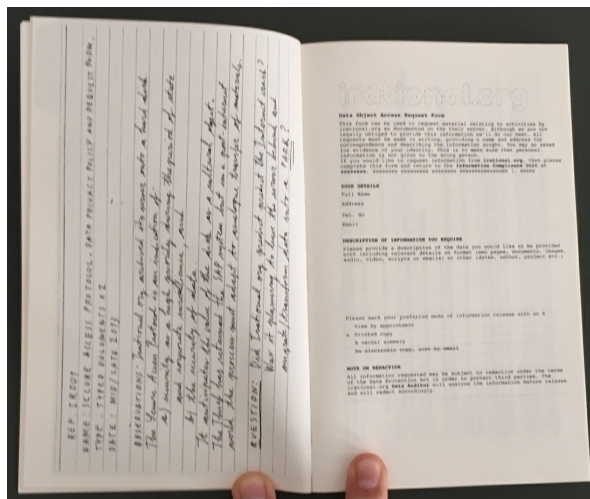 REF IR001
NAME: SECURE ACCESS PROTOCOL, DATA PRIVACY POLICY AND REQUEST FORM.
TYPE: TYPED DOCUMENTS X2
DATE: MID/LATE 2013
OBSERVATIONS - Irational.org archived its server onto a hard disk
The Secure Access Protocol is an indication of
a) security as a high priority during that time of state
and corporate surveillance, and
b) the security of data
It underlines the value of the disk as a cultural object.
QUESTION: Did Irational.org predict archive the internet arch?
Was it planning to leave the internet and
irational.org
Data Object Access Request Form
This form can be used to request material relating to activities by
irational.org as documented on the their server. Although we are not
legally obliged to provide this information we will do our best. All
requests must be made in writing, providing a name and address for
correspondence and describing the information sought. You may be asked
for evidence of your identity. This is to make sure that personal
information is not given to the wrong person.
If you would like to request information from irational.org, then please
complete this form and return to the Information Compliance Unit at
YOUR DETAILS
Full Name
Address
Tel. No
Email
DESCRIPTION OF INFORMATION YOU REQUIRE
Please provide a description of the data you would like to be provided
with including relevant details on format (web pages, documents, images,
audio, video, scripts or emails) or other (dates, author, project etc.)
Please mark your preferred mode of information release with an X
View by appointment
Printed copy
A verbal summary
An electronic copy, sent by email
NOTE ON REDACTION
All information requested may be subject to redaction under the terms
of the Data Protection Act in order to protect third parties. The
irational.org Data Auditor will analyse the information before release
and will redact accordingly.